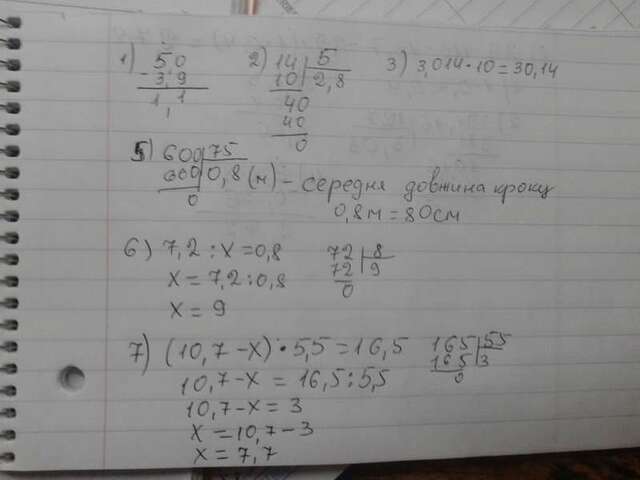 1) 50
- 3,9
1,1
2) 14 | 5
10 | 2,8
40
40
0
3) 3,014 · 10 = 30,14
5) 600 | 75
600 | 0,8 (м) - середня довжина кроку
0
0,8 м = 80 см
6) 7,2 : x = 0,8
x = 7,2 : 0,8
x = 9
72 | 8
72 | 9
0
7) (10,7 - x) · 5,5 = 16,5
10,7 - x = 16,5 : 5,5
10,7 - x = 3
x = 10,7 - 3
x = 7,7
165 | 55
165 | 3
0